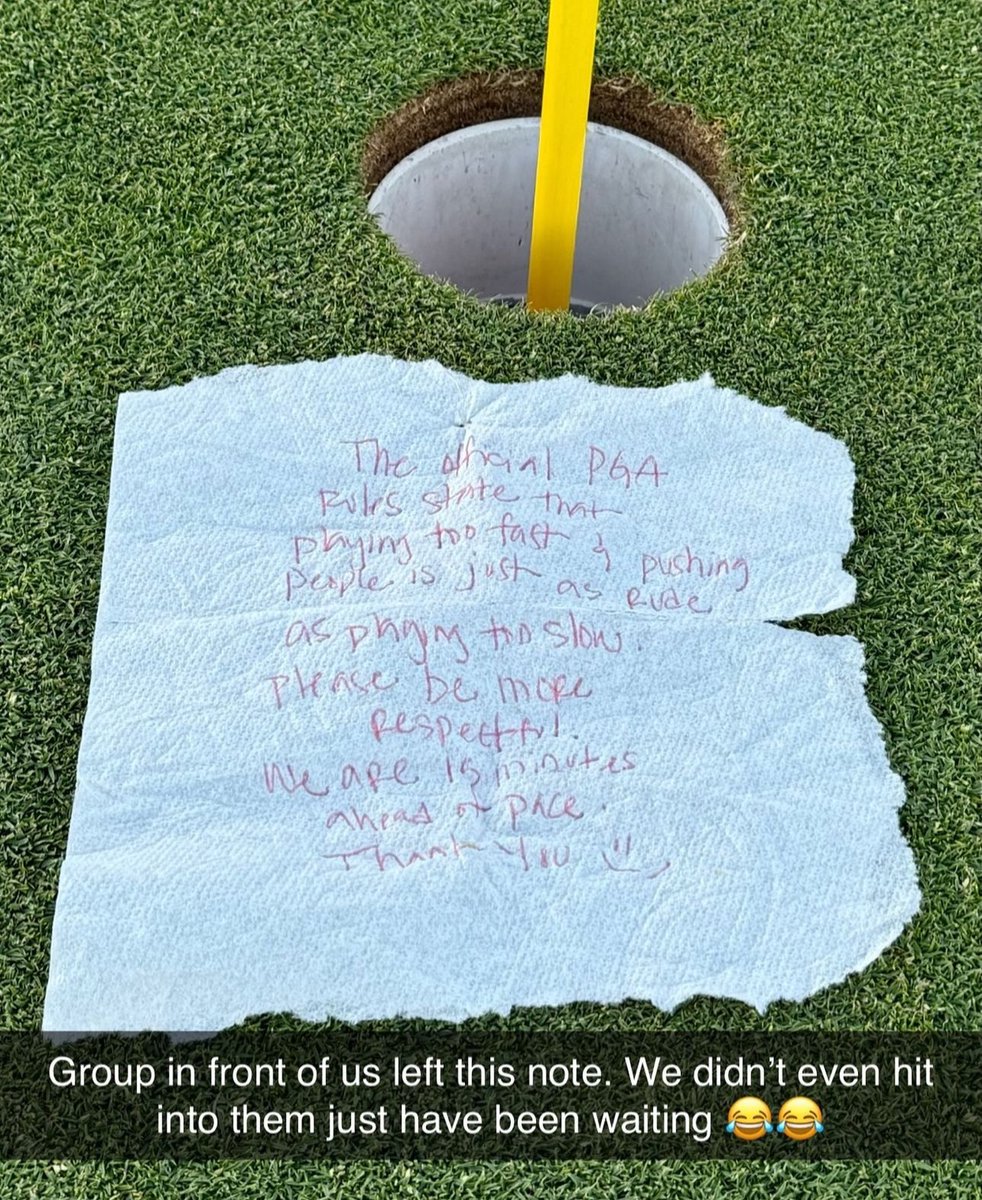 The official PGA
Rules state that
playing too fast & pushing
people is just as Rude
as playing too slow.
please be more
Respectful.
We are 15 minutes
ahead of pace.
Thank You
Group in front of us left this note. We didn’t even hit
into them just have been waiting 😂😂